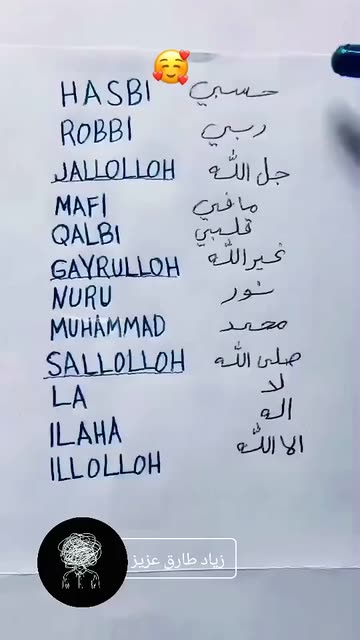 HASBI حسبي
ROBBI ربي
JALLOLLOH جل الله
MAFI مافي
QALBI قلبي
GAYRULLOH غيرالله
NURU نور
MUHAMMAD محمد
SALLOLLOH صلى الله
LA لا
ILAHA اله
ILLOLLOH الا الله
زياد طارق عزيز